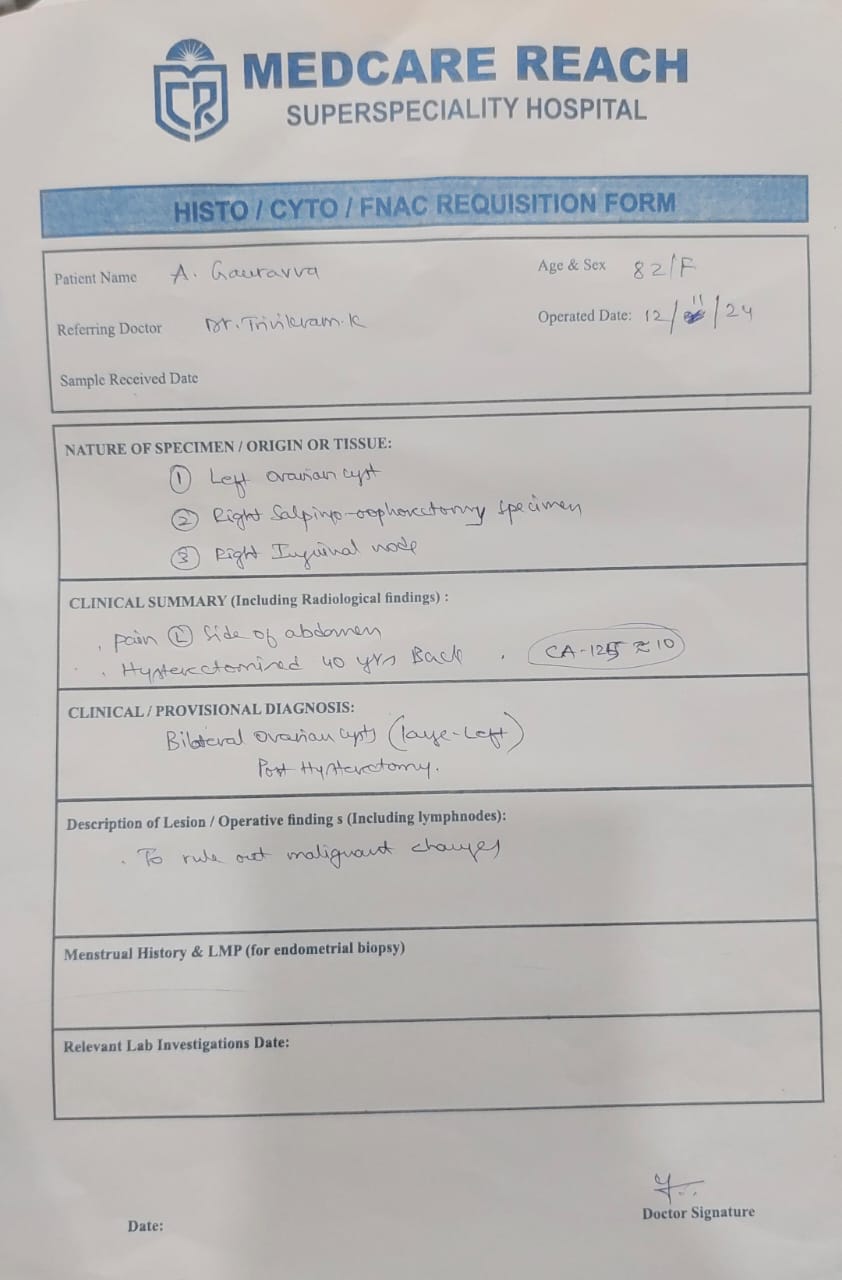 MEDCARE REACH
SUPERSPECIALITY HOSPITAL
HISTO / CYTO / FNAC REQUISITION FORM
Patient Name A. Gauravva Age & Sex 82/F
Referring Doctor Dr. Trivikram.K Operated Date: 12/11/24
Sample Received Date
NATURE OF SPECIMEN / ORIGIN OR TISSUE:
① Left ovarian cyst
② Right Salpingo-oophorectomy specimen
③ Right Inguinal node
CLINICAL SUMMARY (Including Radiological findings) :
. pain Ⓛ Side of abdomen
. Hysterectomised 40 yrs Back . CA-125 ≈ 10
CLINICAL / PROVISIONAL DIAGNOSIS:
Bilateral ovarian cysts (large-Left)
Post Hysterectomy.
Description of Lesion / Operative finding s (Including lymphnodes):
. To rule out malignant changes
Menstrual History & LMP (for endometrial biopsy)
Relevant Lab Investigations Date:
Doctor Signature
Date: